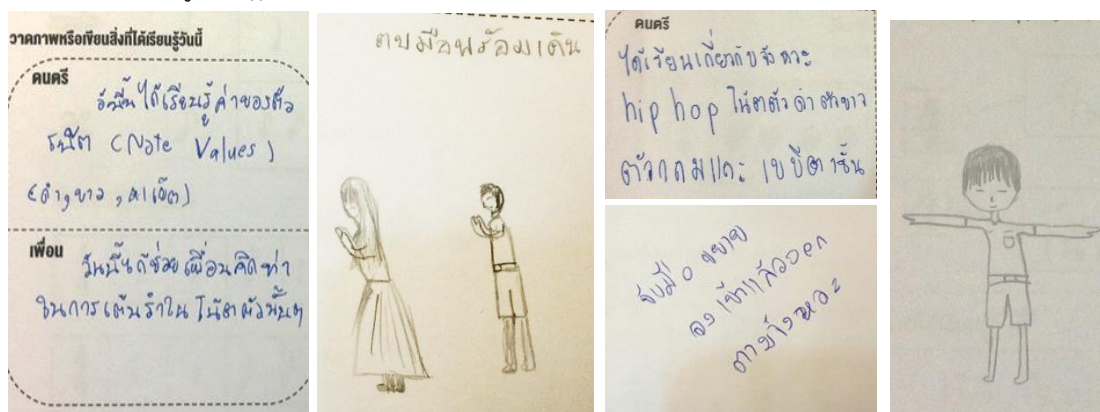 วาดภาพหรือเขียนสิ่งที่ได้เรียนรู้วันนี้
ดนตรี
วันนี้ได้เรียนรู้ค่าของตัว
โน๊ต (Note Values)
(ดำ, ขาว, เขบ็ต)
เพื่อน
วันนี้ได้ช่วยเพื่อนคิดท่า
ในการเต้นรำใน โน๊ตตัวนั้นๆ
ตบมือพร้อมเดิน
ดนตรี
ได้เรียนเกี่ยวกับจังหวะ
hip hop โน้ตตัวดำ ตัวขาว
ตัวกลมและ เขบ็ต 1 ชั้น
จับมือ ขยาย
วงเข้าแล้วออก
ตามจังหวะ